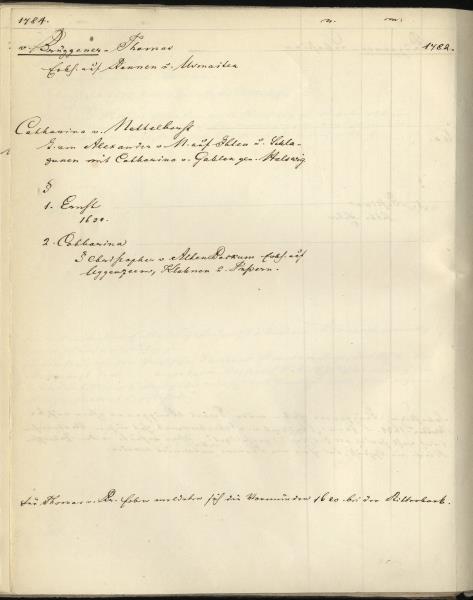 1784. n. m.
v. Brüggener. Thomas 1782.
Erbh. auf Rennen u. Usmaiten
Catharina v. Nettelhorst
T. am Alexander v. N. auf Ihlen u. Schla-
gunen mit Catharina v. Gahlen gen. Halswig
§
1. Ernst
1620.
2. Catharina
§ Christopher v. Alten Bockum Erbh. auf
Uggenzeem, Klahnen u. Pussern.
Für Thomas v. Br. Erben meldeten sich die Vormünder 1620 bei der Ritterbank.